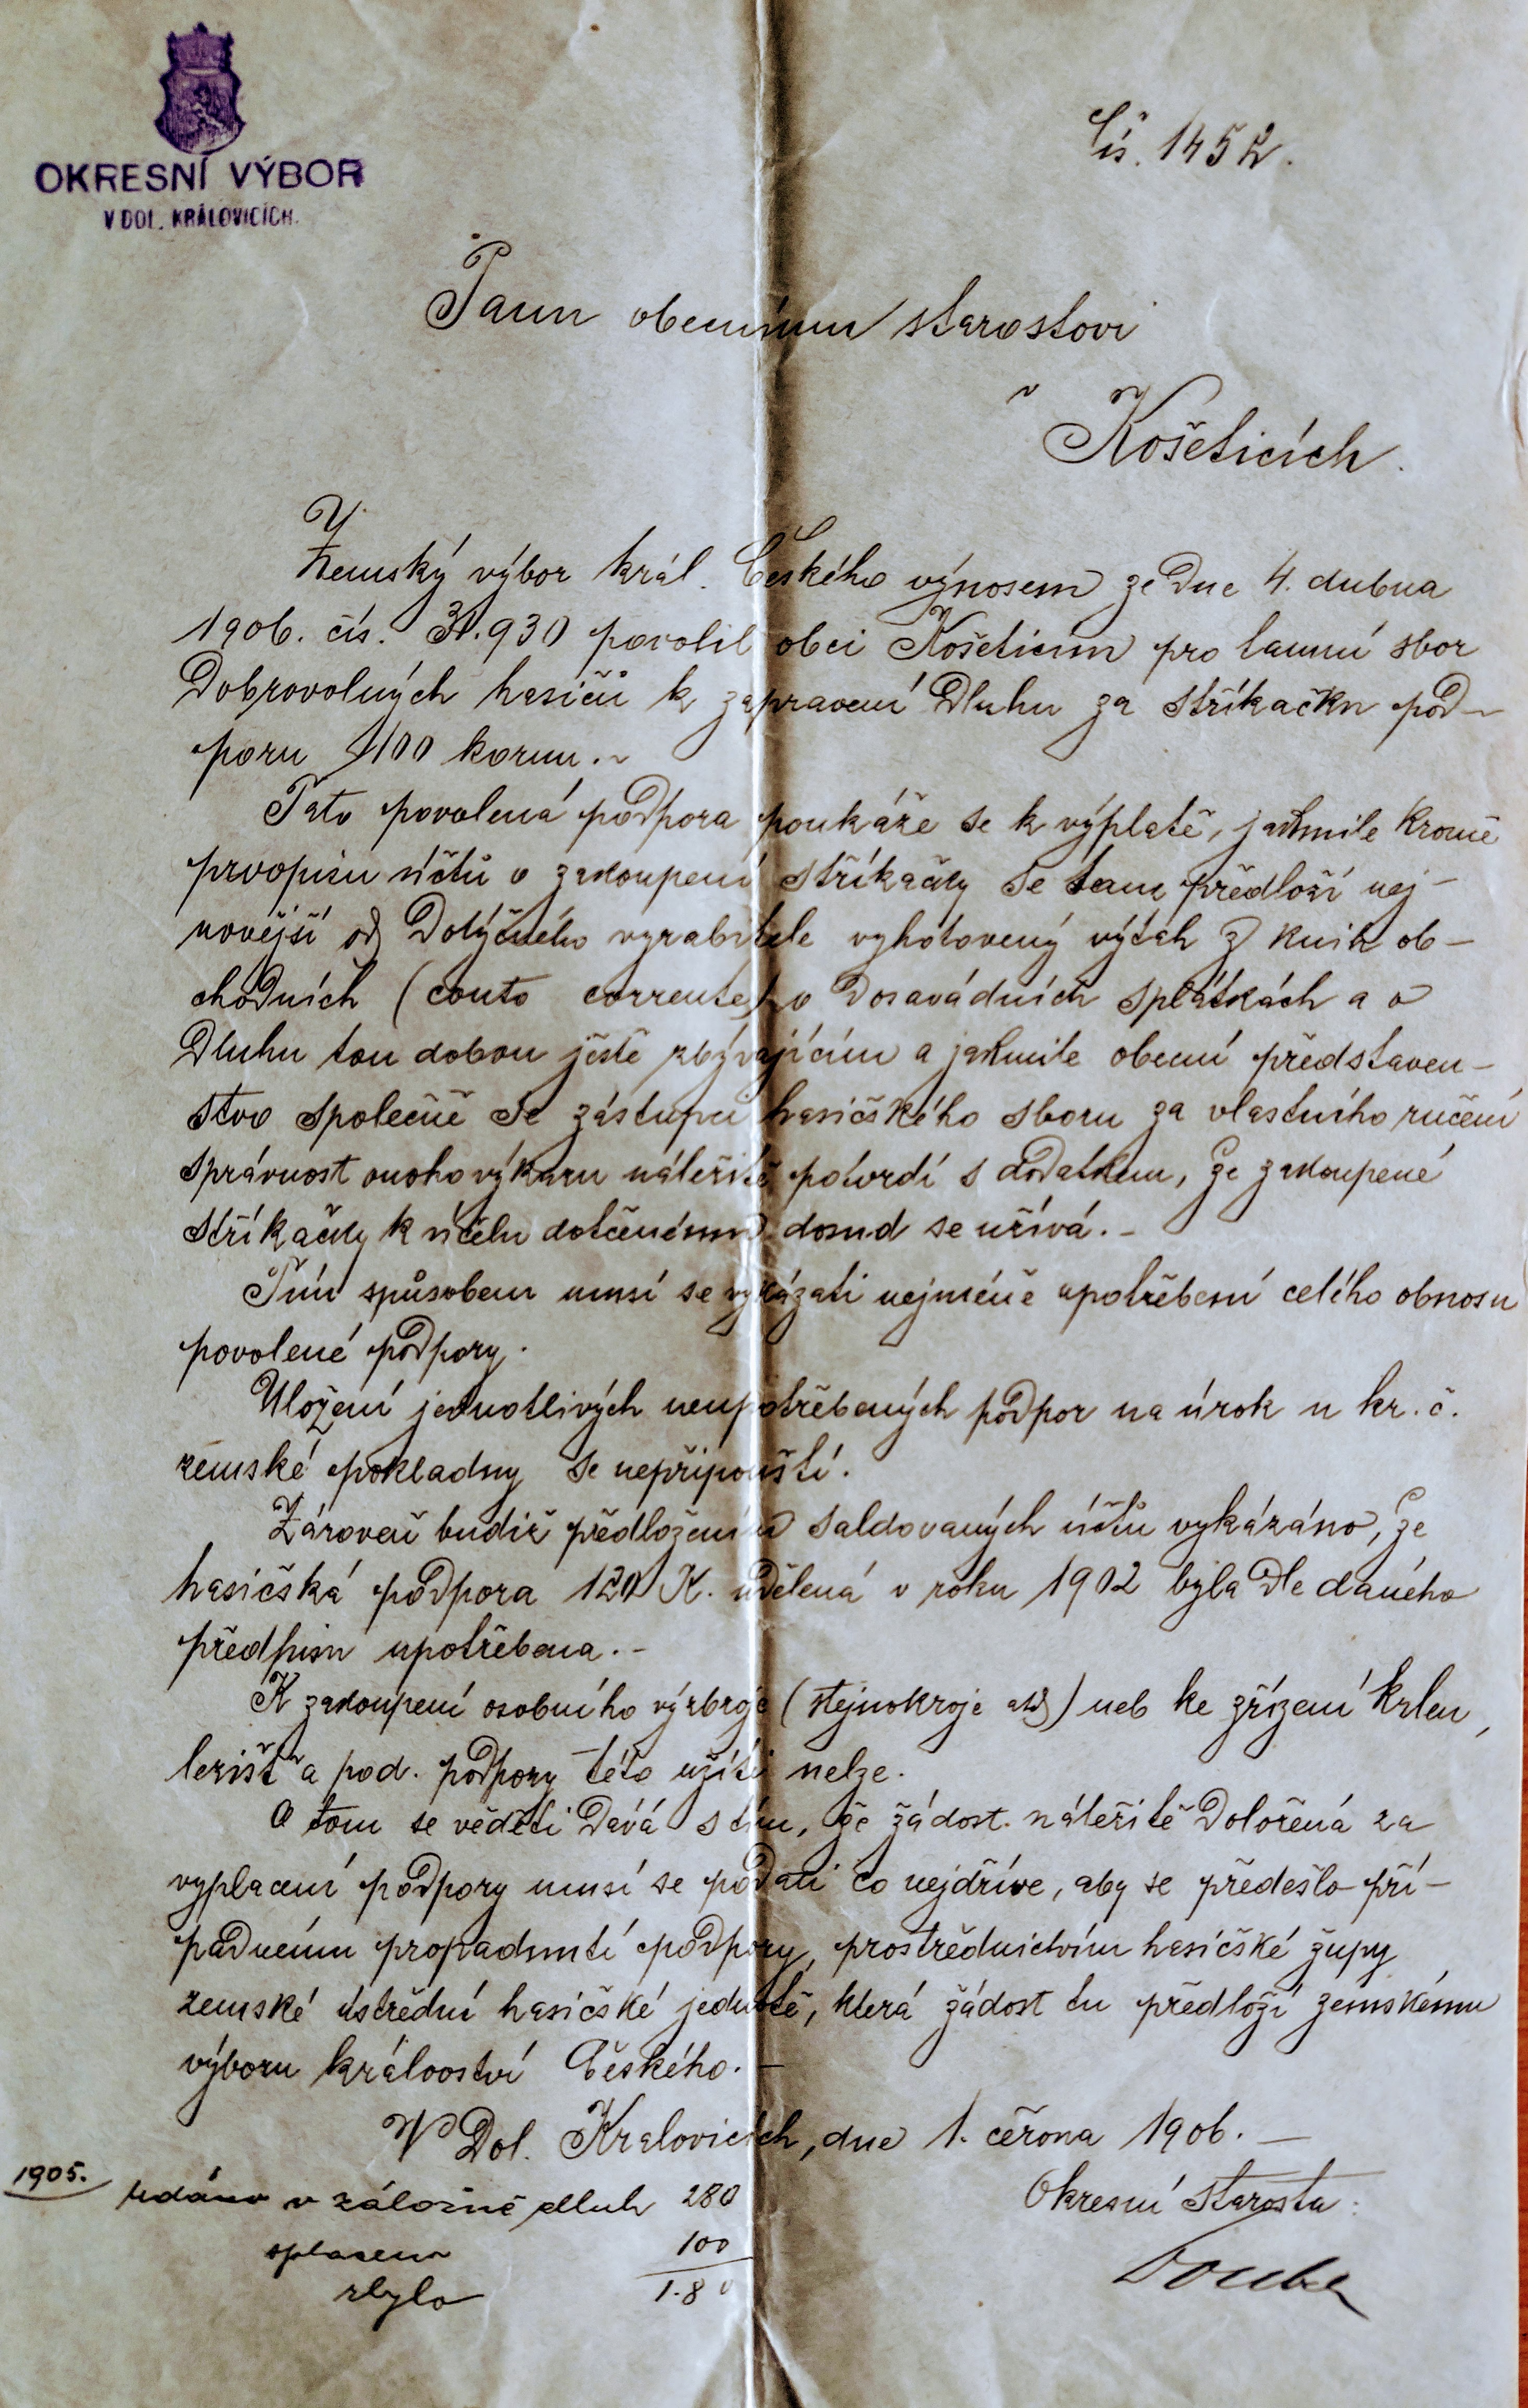 OKRESNÍ VÝBOR
V DOL. KRÁLOVICÍCH.
Čís. 1452.
Panu obecnímu starostovi
v
Košeticích.
Zemský výbor král. Českého výnosem ze dne 4. dubna
1906. čís. 31.930 povolil obci Košeticím pro tamní sbor
Dobrovolných hasičů k zapravení Dluhu za stříkačku pod-
poru 100 korun.
Tato povolená podpora poukáže se k výplatě, jakmile kromě
prvopisu účtů o zakoupení stříkačky se tam předloží nej-
novější od Dotyčného vyrabitele vyhotovený výtah z knih ob-
chodních (conto corrente) o Dosavádních splátkách a o
Dluhu tou dobou ještě zbývajícím a jakmile obecní představen-
stvo společně se zástupci hasičského sboru za vlastního ručení
správnost onoho výkazu náležitě potvrdí s dodatkem, že zakoupené
stříkačky k účelu dotčenému dosud se užívá.-
Tím spůsobem musí se vykázati nejméně upotřebení celého obnosu
povolené podpory.
Uložení jednotlivých neupotřebených podpor na úrok u kr. č.
zemské pokladny se nepřipouští.
Zároveň budiž předložením saldovaných účtů vykázáno, že
hasičská podpora 120 K. udělená v roku 1902 byla dle daného
předpisu upotřebena.-
K zakoupení osobního výzbroje (stejnokroje atd) neb ke zřízení
lezišť a pod. podpory této užíti nelze.
O tom se věděti Dává s tím, že žádost náležitě Doložená za
vyplacení podpory musí se podati co nejdříve, aby se předešlo pří-
padnému propadnutí podpory, prostřednictvím hasičské župy
zemské ústřední hasičské jednotě, která žádost tu předloží zemskému
výboru království Českého.-
V Dol. Kralovicích, dne 1. června 1906.-
1905.
udáno v záložně dluh 280
Okresní starosta:
splaceno 100
zbylo 1.80